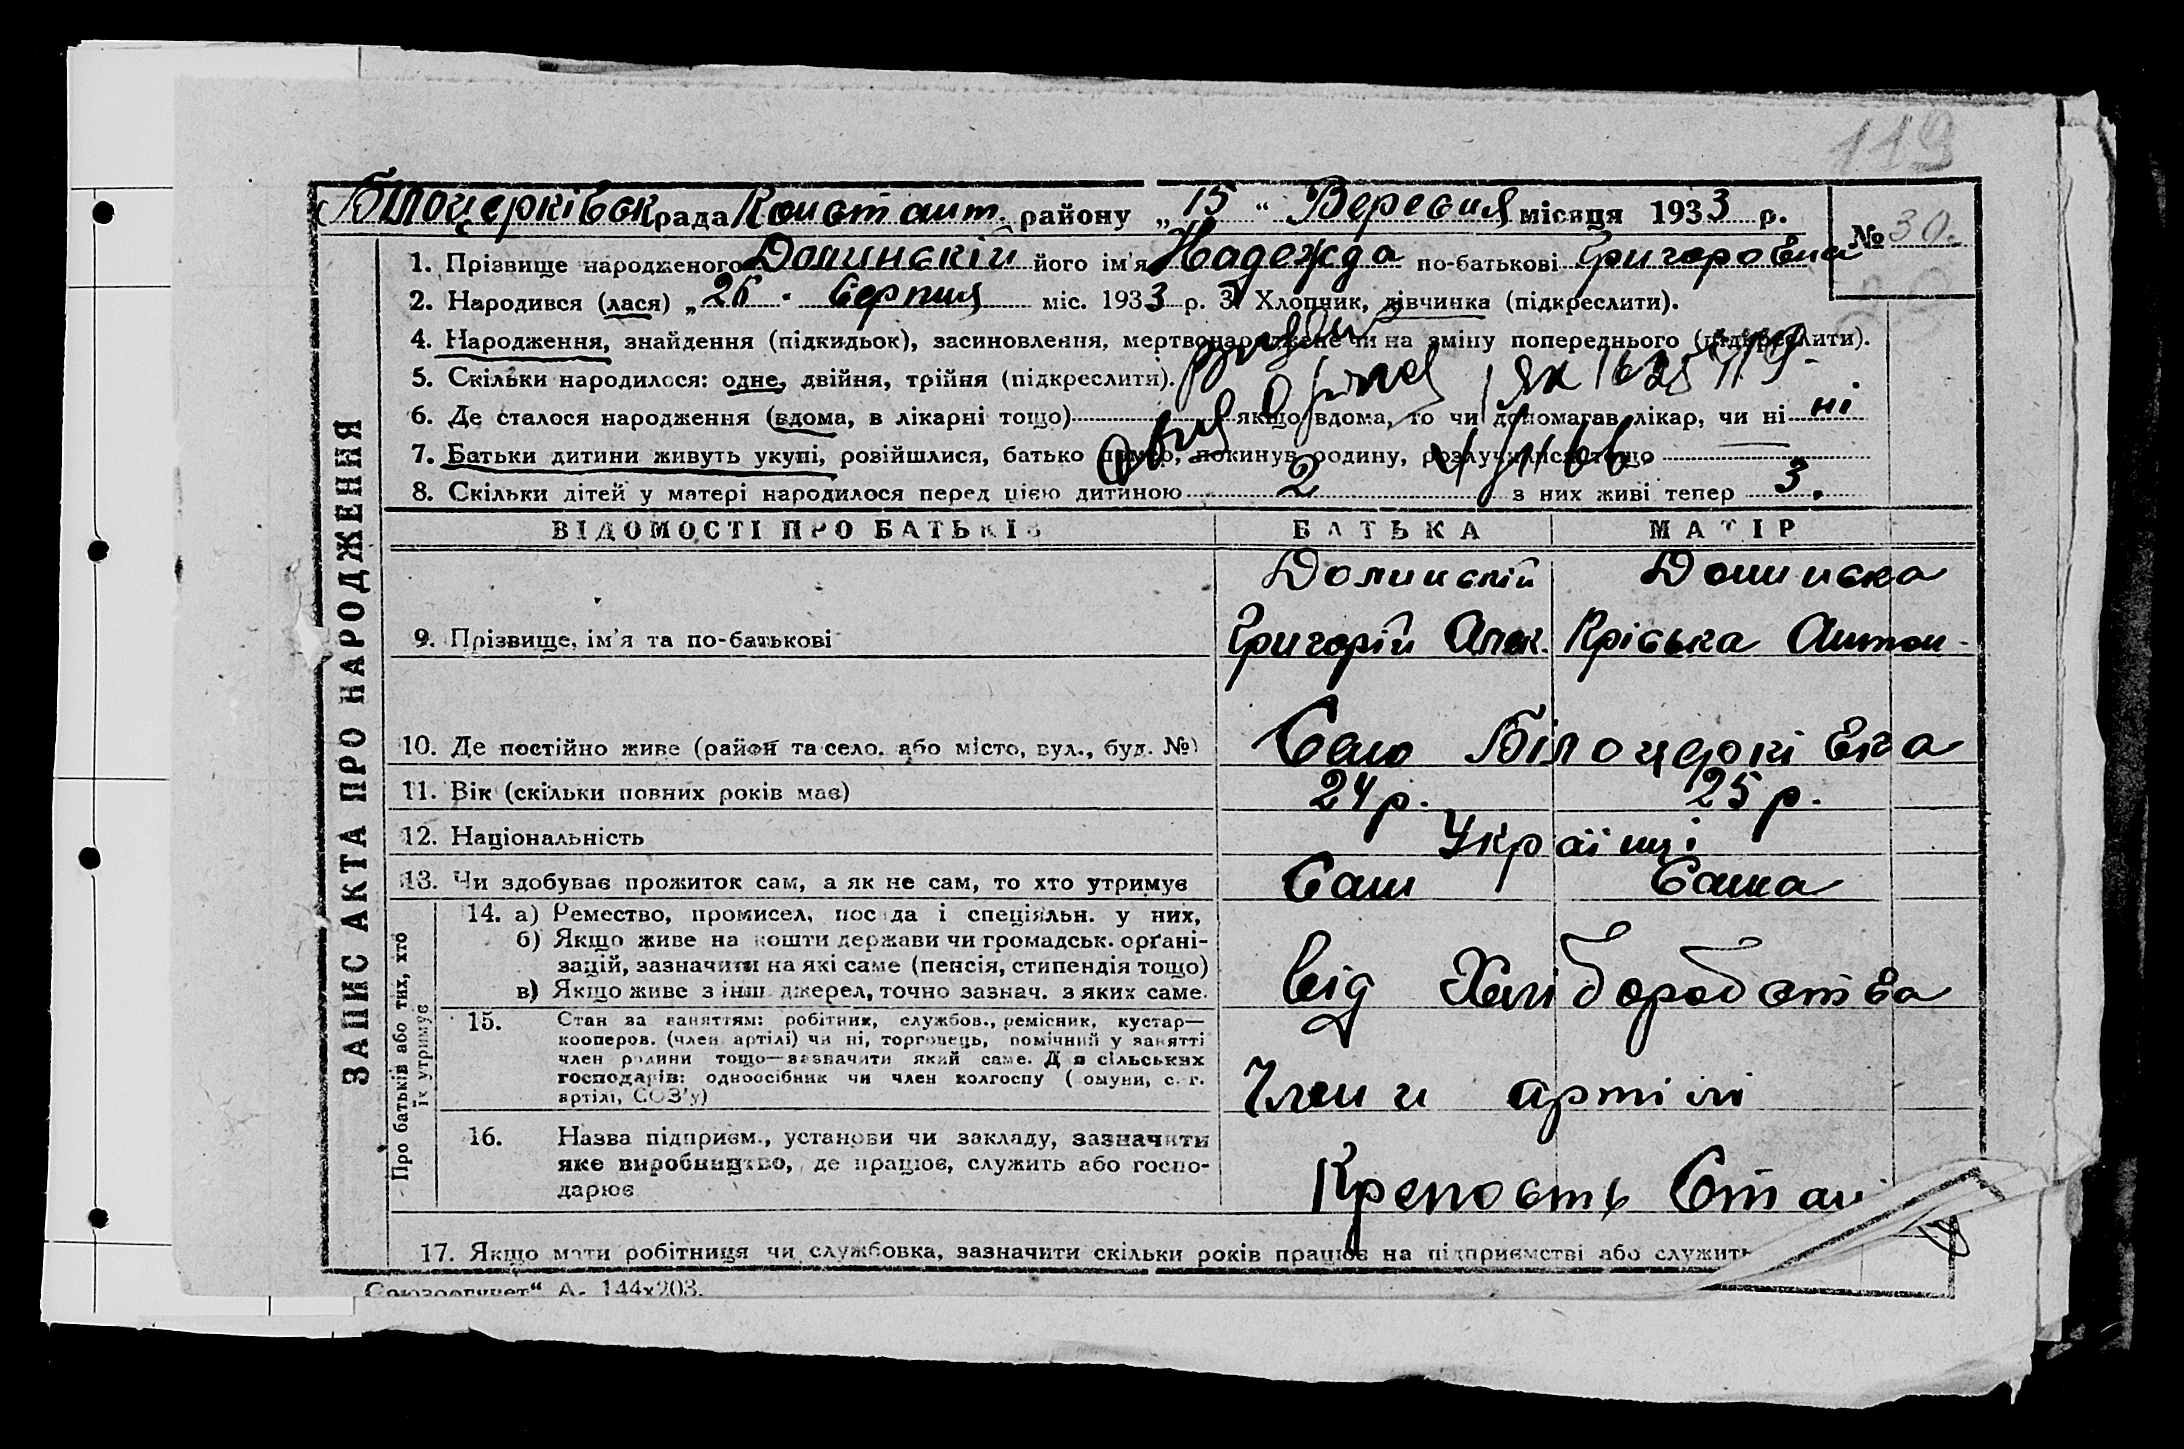 119
Білоцерківск рада Констант. району „15“ Вересня місяця 1933 р.
№ 30.
1. Прізвище народженого Долинскій його ім'я Надежда по-батькові Григоровна
2. Народився (лася) „26 . Серпня міс. 1933 р. 3. Хлопчик, дівчинка (підкреслити).
4. Народження, знайдення (підкидьок), засиновлення, мертвонароджене чи на зміну попереднього (підкреслити).
5. Скільки народилося: одне, двійня, трійня (підкреслити).
6. Де сталося народження (вдома, в лікарні тощо) якщо вдома, то чи допомагав лікар, чи ні ні
7. Батьки дитини живуть укупі, розійшлися, батько помер, покинув родину, розлучилися тощо
8. Скільки дітей у матері народилося перед цією дитиною 2 з них живі тепер 3.
ВІДОМОСТІ ПРО БАТЬКІВ БАТЬКА МАТІР
Долинскій Долинска
9. Прізвище, ім'я та по-батькові Григорій Алек. Кріська Антон-
10. Де постійно живе (район та село. або місто, вул., буд. №) Село Білоцерківка
11. Вік (скільки повних років має) 24 р. 25 р.
12. Національність Українці
13. Чи здобуває прожиток сам, а як не сам, то хто утримує Сам Сама
14. а) Ремество, промисел, посада і спеціяльн. у них,
б) Якщо живе на кошти держави чи громадськ. орґані-
зацій, зазначити на які саме (пенсія, стипендія тощо)
в) Якщо живе з інш. джерел, точно зазнач. з яких саме.
від Хліборобства
15. Стан за заняттям: робітник, службов., ремісник, кустар—
кооперов. (член артілі) чи ні, торговець, помічний у занятті
член родини тощо—зазначити який саме. Для сільських
господарів: одноосібник чи член колгоспу (комуни, с. г.
артілі, СОЗ'у)
Члени артілі
16. Назва підприєм., установи чи закладу, зазначити
яке виробництво, де працює, служить або госпо-
дарює
Крепость
17. Якщо мати робітниця чи службовка, зазначити скільки років працює на підприємстві або служить
А. 144х203.
ЗАПИС АКТА ПРО НАРОДЖЕННЯ
Про батьків або тих, хто
їх утримує